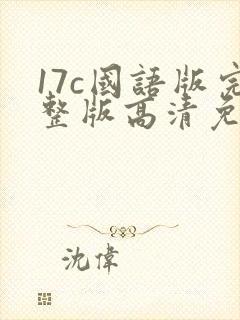 17c國語版完
整版高清免
沈偉